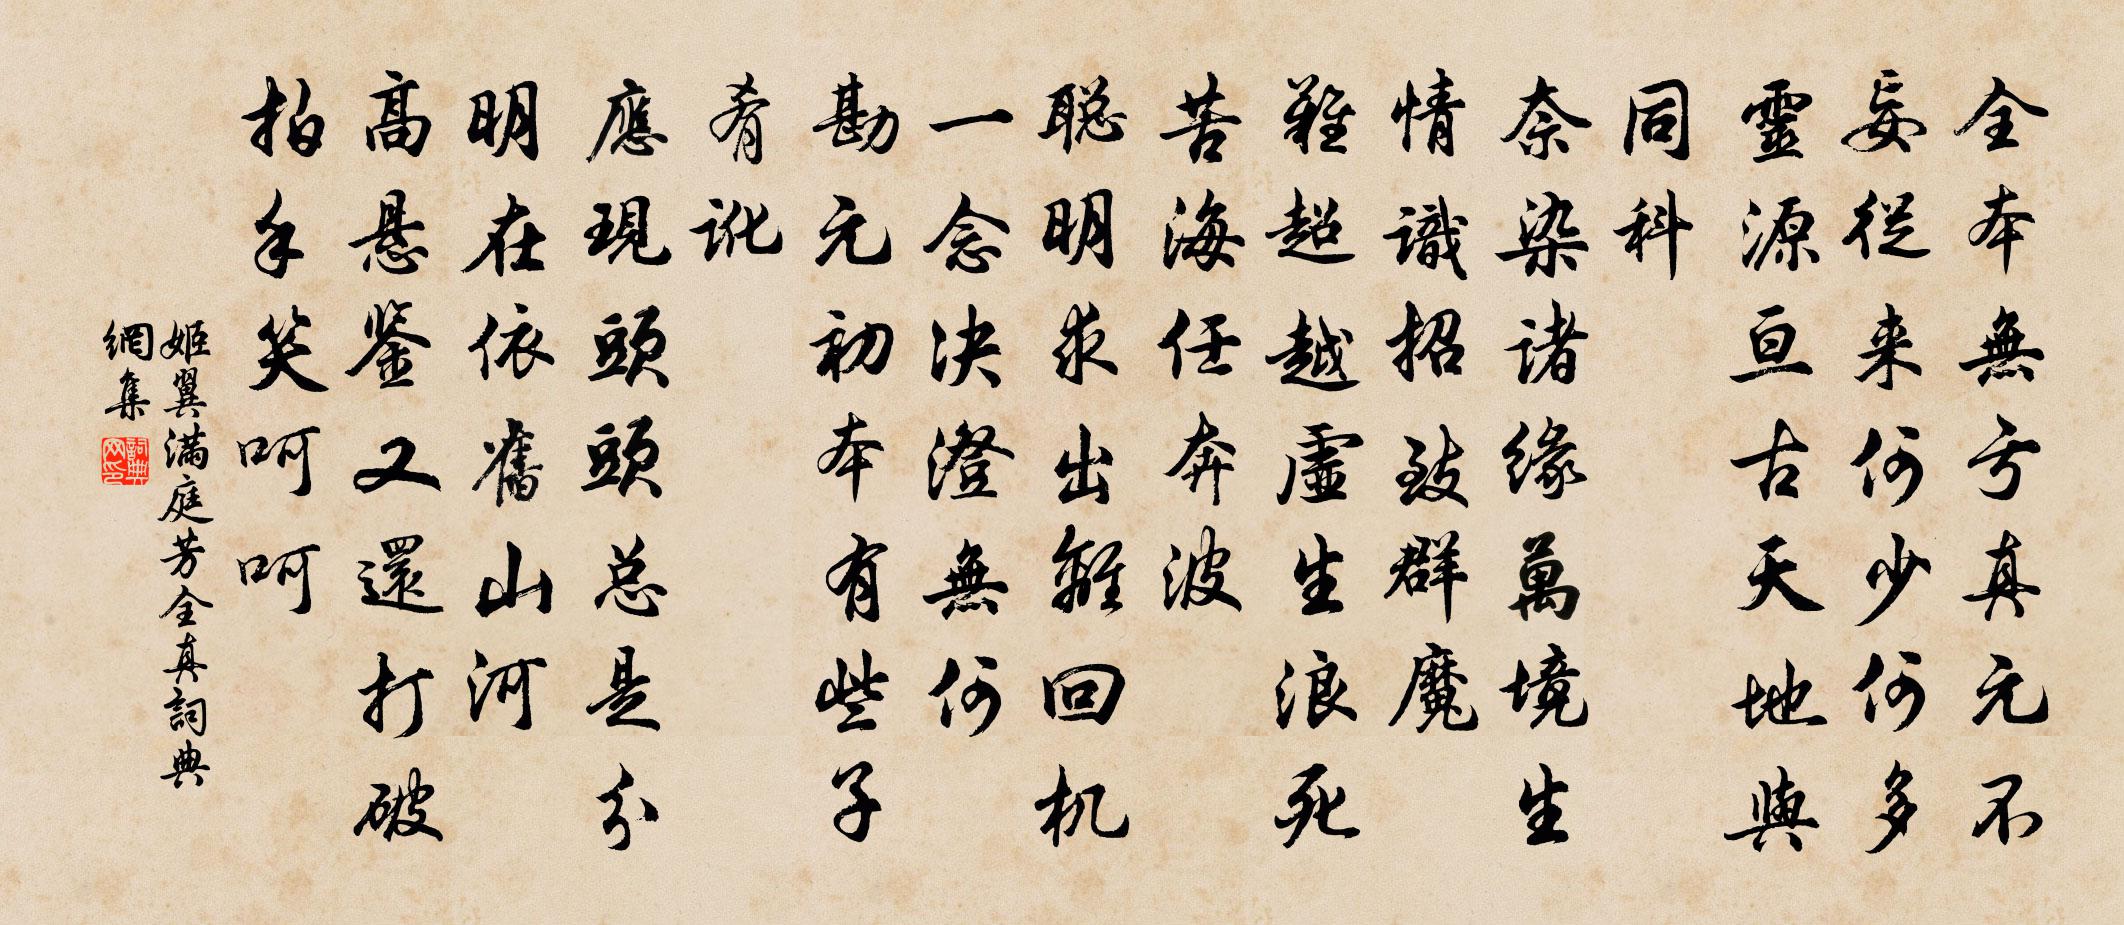 全本無亏真元不
妄従来何少何多
靈源亘古天地與
同科
奈染诸缘萬境生
情識招致群魔
難超越虛生浪死
苦海任奔波
聪明求出離回机
一念决澄無何
勘元初本有些子
肴訛
應現頭頭总是分
明在依舊山河
高悬鉴又還打破
拍手笑呵呵
姬翼满庭芳全真詞典
網集
詞典
网印